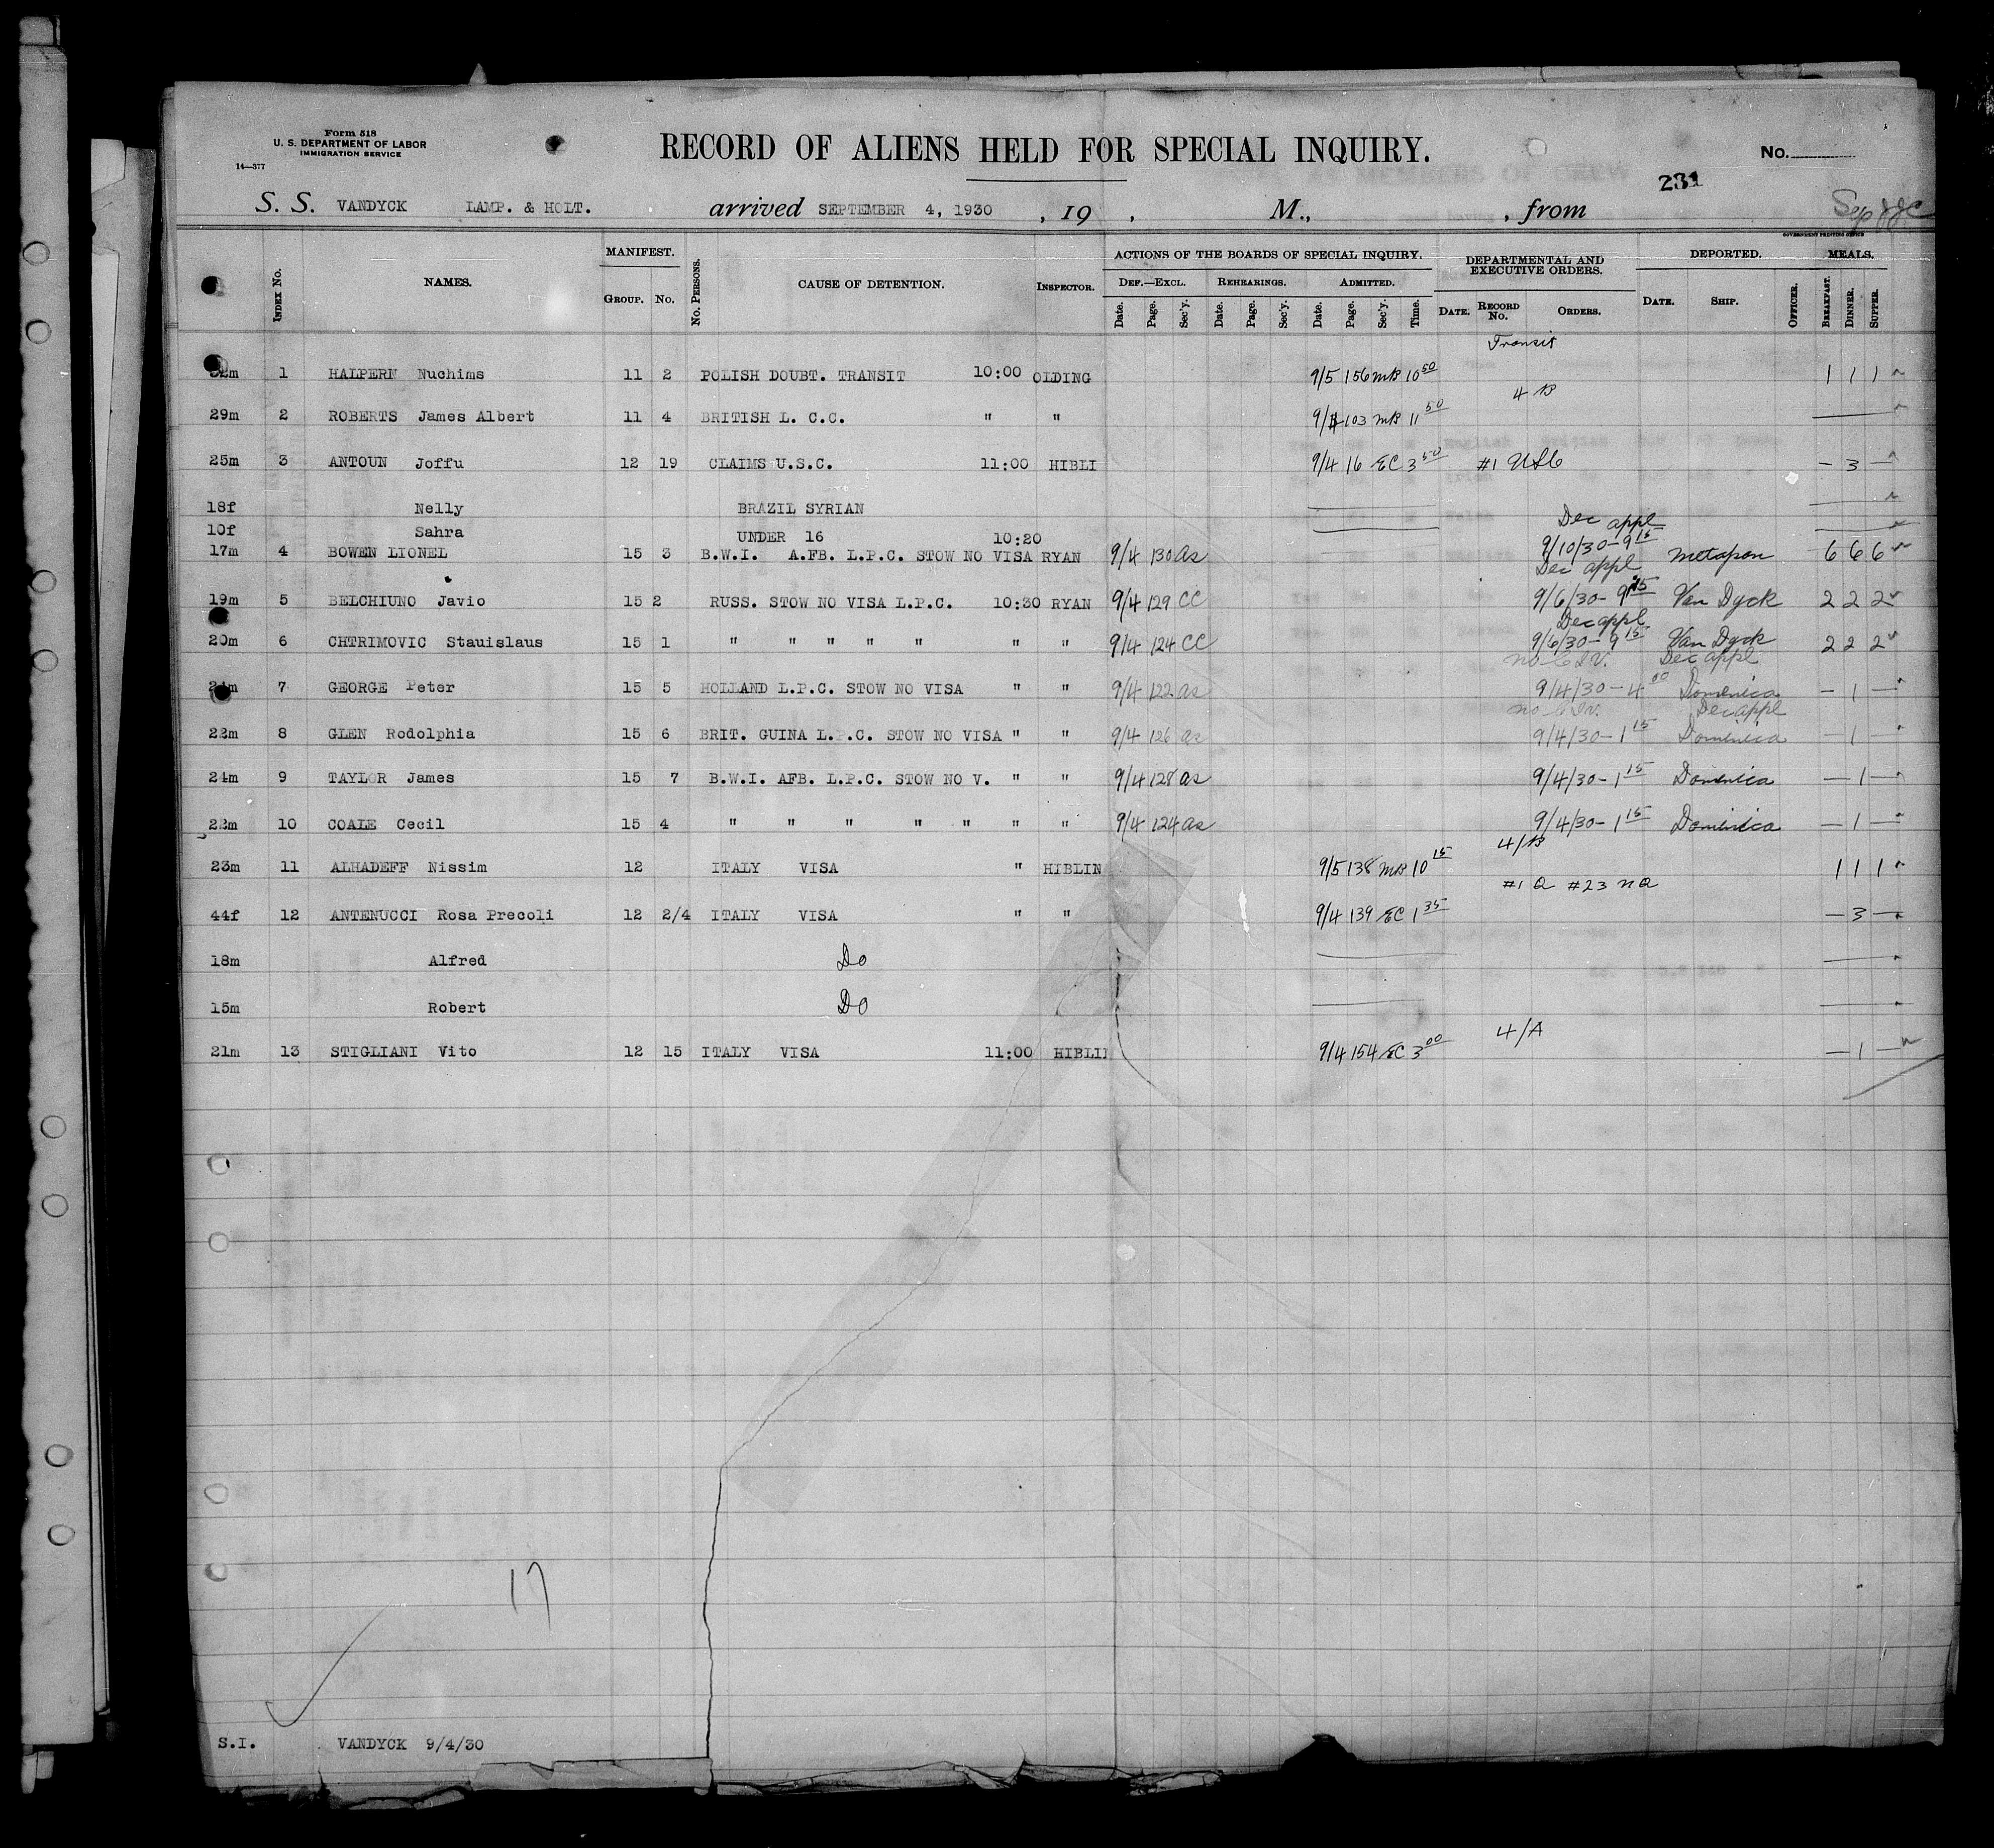 Form 518
U. S. DEPARTMENT OF LABOR
IMMIGRATION SERVICE
14—377
RECORD OF ALIENS HELD FOR SPECIAL INQUIRY.
No.
231
S. S. VANDYCK LAMP. & HOLT. arrived SEPTEMBER 4, 1930 , 19 , M., , from
Sep
GOVERNMENT PRINTING OFFICE
INDEX No. NAMES. MANIFEST. No. PERSONS. CAUSE OF DETENTION. INSPECTOR. ACTIONS OF THE BOARDS OF SPECIAL INQUIRY. DEPARTMENTAL AND EXECUTIVE ORDERS. DEPORTED. MEALS.
GROUP. No. DEF.—EXCL. REHEARINGS. ADMITTED.
Date. Page. Sec'y. Date. Page. Sec'y. Date. Page. Sec'y. Time. DATE. RECORD No. ORDERS. DATE. SHIP. OFFICER. BREAKFAST. DINNER. SUPPER.
Transit
32m 1 HALPERN Nuchims 11 2 POLISH DOUBT. TRANSIT 10:00 OLDING 9/5 156 MB 10 50 1 1 1
4 B
29m 2 ROBERTS James Albert 11 4 BRITISH L. C.C. " " 9/4 103 MB 11 50
25m 3 ANTOUN Joffu 12 19 CLAIMS U.S.C. 11:00 HIBLI 9/4 16 EC 3 50 #1 USC — 3 —
18f Nelly BRAZIL SYRIAN
10f Sahra UNDER 16 10:20
Dec appl
17m 4 BOWEN LIONEL 15 3 B.W.I. A.FB. L.P.C. STOW NO VISA RYAN 9/4 130 as 9/10/30 - 9 15 Metapan 6 6 6
Dec appl
19m 5 BELCHIUNO Javio 15 2 RUSS. STOW NO VISA L.P.C. 10:30 RYAN 9/4 129 CC 9/6/30 - 9 15 Van Dyck 2 2 2
Dec appl
20m 6 CHTRIMOVIC Stauislaus 15 1 " " " " " " " 9/4 124 CC 9/6/30 - 9 15 Van Dyck 2 2 2
Dec appl
24m 7 GEORGE Peter 15 5 HOLLAND L.P.C. STOW NO VISA " " 9/4 122 as 9/4/30 - 4 00 Domenica — 1 —
Dec appl
22m 8 GLEN Rodolphia 15 6 BRIT. GUINA L.P.C. STOW NO VISA " " 9/4 126 as 9/4/30 - 1 15 Domenica — 1 —
24m 9 TAYLOR James 15 7 B.W.I. AFB. L.P.C. STOW NO V. " " 9/4 128 as 9/4/30 - 1 15 Domenica — 1 —
22m 10 COALE Cecil 15 4 " " " " " " " 9/4 124 as 9/4/30 - 1 15 Domenica — 1 —
4/B
23m 11 ALHADEFF Nissim 12 ITALY VISA " HIBLIN 9/5 138 MB 10 15 1 1 1
#1 Q #23 NQ
44f 12 ANTENUCCI Rosa Precoli 12 2/4 ITALY VISA " " 9/4 139 EC 1 35 — 3 —
18m Alfred Do
15m Robert Do
4/A
21m 13 STIGLIANI Vito 12 15 ITALY VISA 11:00 HIBLIN 9/4 154 EC 3 00 — 1 —
17
S.I. VANDYCK 9/4/30